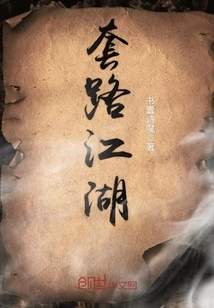 套路江湖
书蠹诗魔◎著
创世中文网